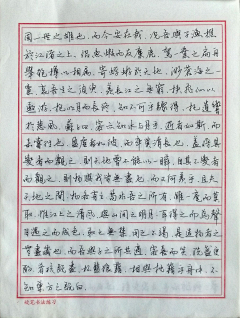 固一世之雄也，而今安在哉，况吾与子渔樵
於江渚之上，侣鱼虾而友麋鹿，驾一叶之扁舟
举匏樽以相属，寄蜉蝣於天地，渺沧海之一
粟，哀吾生之须臾，羡长江之无穷，挟飞仙以
遨游，抱明月而长终，知不可乎骤得，托遗响
於悲风，苏子曰，客亦知夫水与月乎，逝者如斯，而
未尝往也，盈虚者如彼，而卒莫消长也，盖将自其
变者而观之，则天地曾不能以一瞬，自其不变者
而观之，则物与我皆无尽也，而又何羡乎，且夫
天地之间，物各有主，苟非吾之所有，虽一毫而莫
取，惟江上之清风，与山间之明月，耳得之而为声
目遇之而成色，取之无禁，用之不竭，是造物者之
无尽藏也，而吾与子之所共适，客喜而笑，洗盏更
酌，肴核既尽，杯盘狼藉，相与枕藉乎舟中，不
知东方之既白，